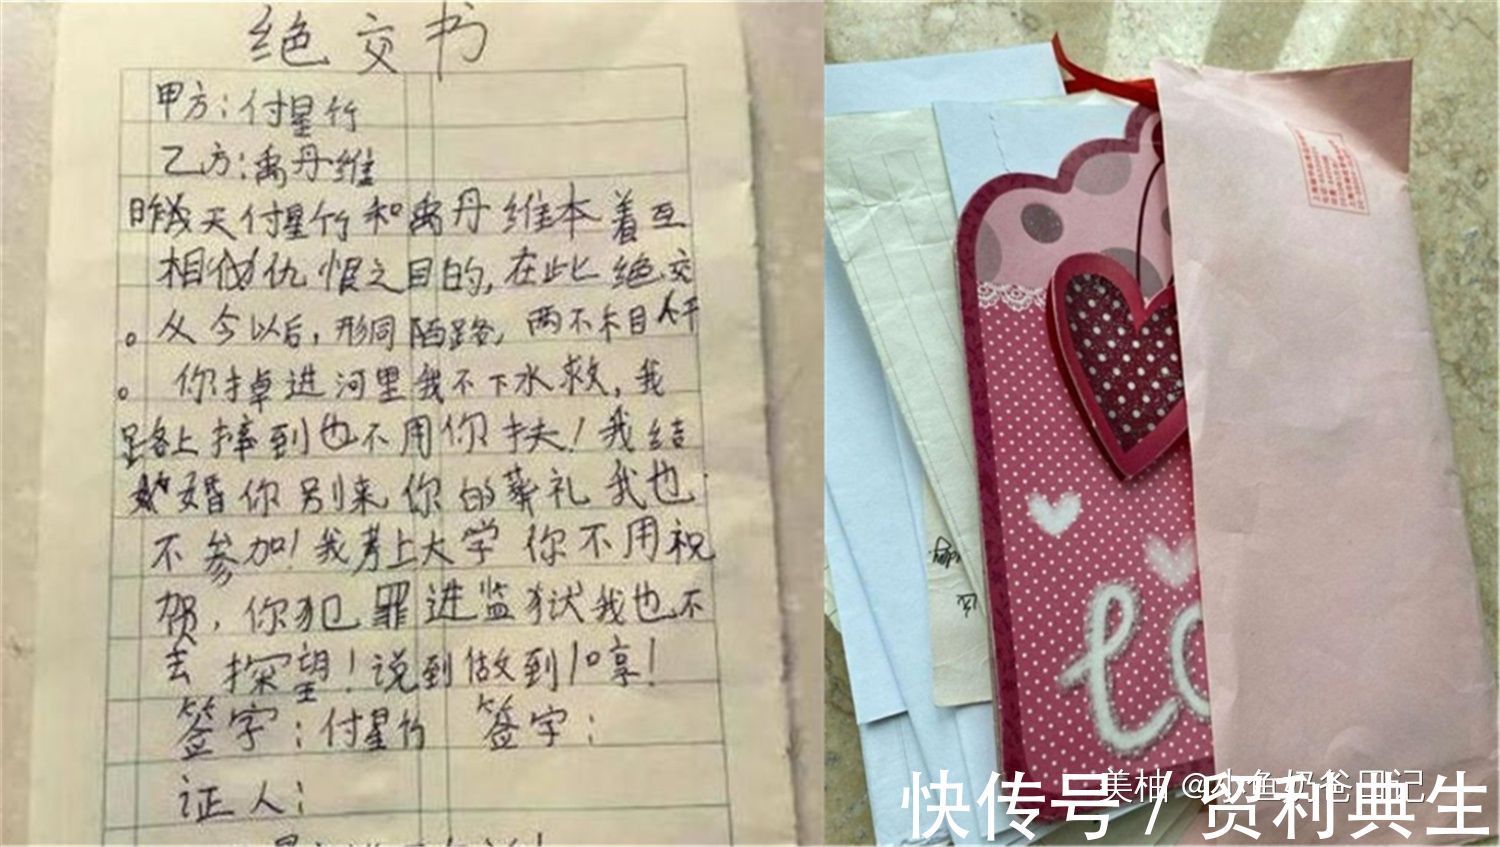 绝交书
甲方:付星竹
乙方:禹丹维
昨天付星竹和禹丹维本着互
相仇恨之目的,在此绝交
。从今以后,形同陌路,两不相干
。你掉进河里我不下水救,我
路上摔到也不用你扶!我结
婚你别来你的葬礼我也
不参加!我考上大学你不用祝
贺,你犯罪进监狱我也不
去探望!说到做到
签字:付星竹 签字:
证人:
lo
美柚@小鱼奶爸日记
快传号/贸利典生